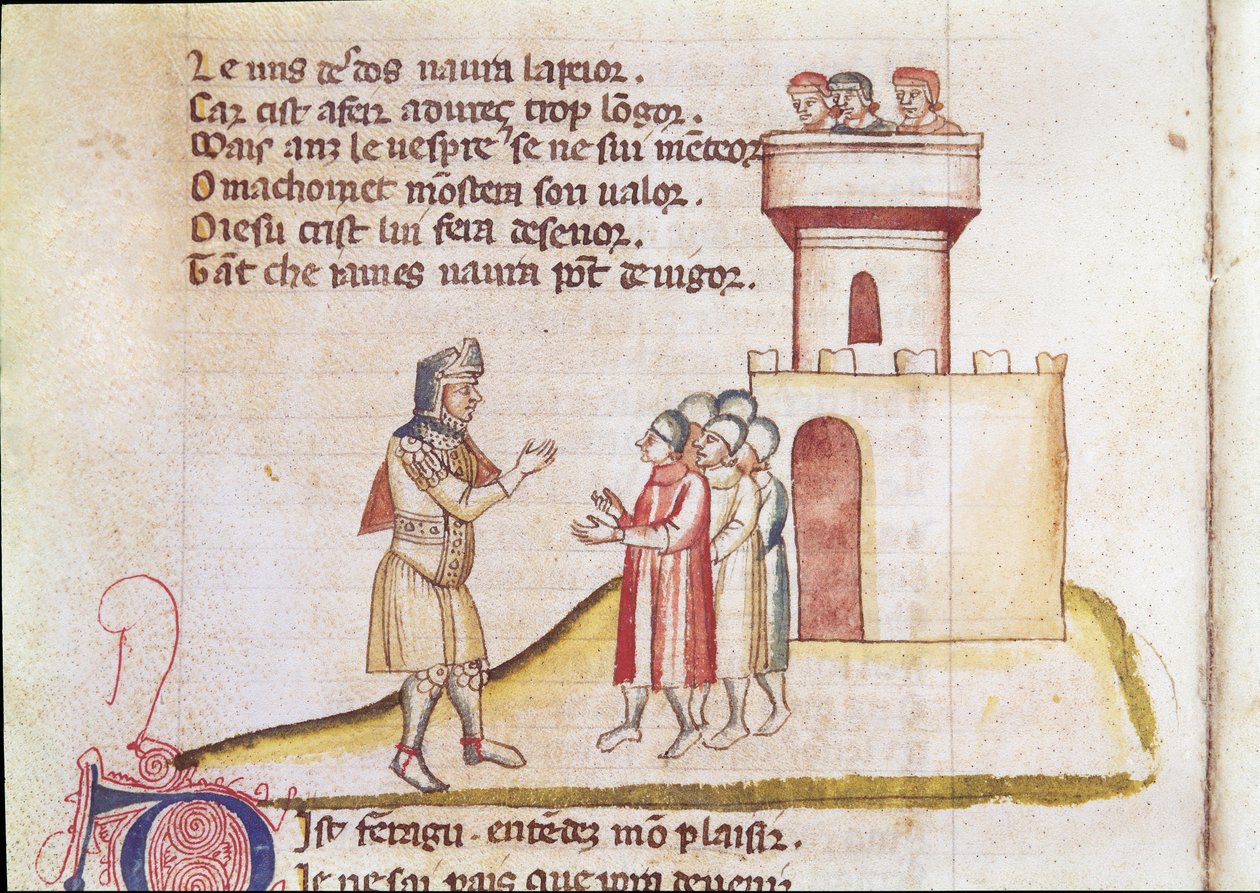 Le uns de dos naura lapeior.
Car cist afeir adureç trop lōgor.
Mais anz le uespre se ne sui mēteor
O machomet mōstera son ualor.
O iesu crist lui fera desenor.
Tāt che iames naura pōt deuigor.
Dist feragu. entēdez mō plaisir.
Je ne sai pais que deuenir